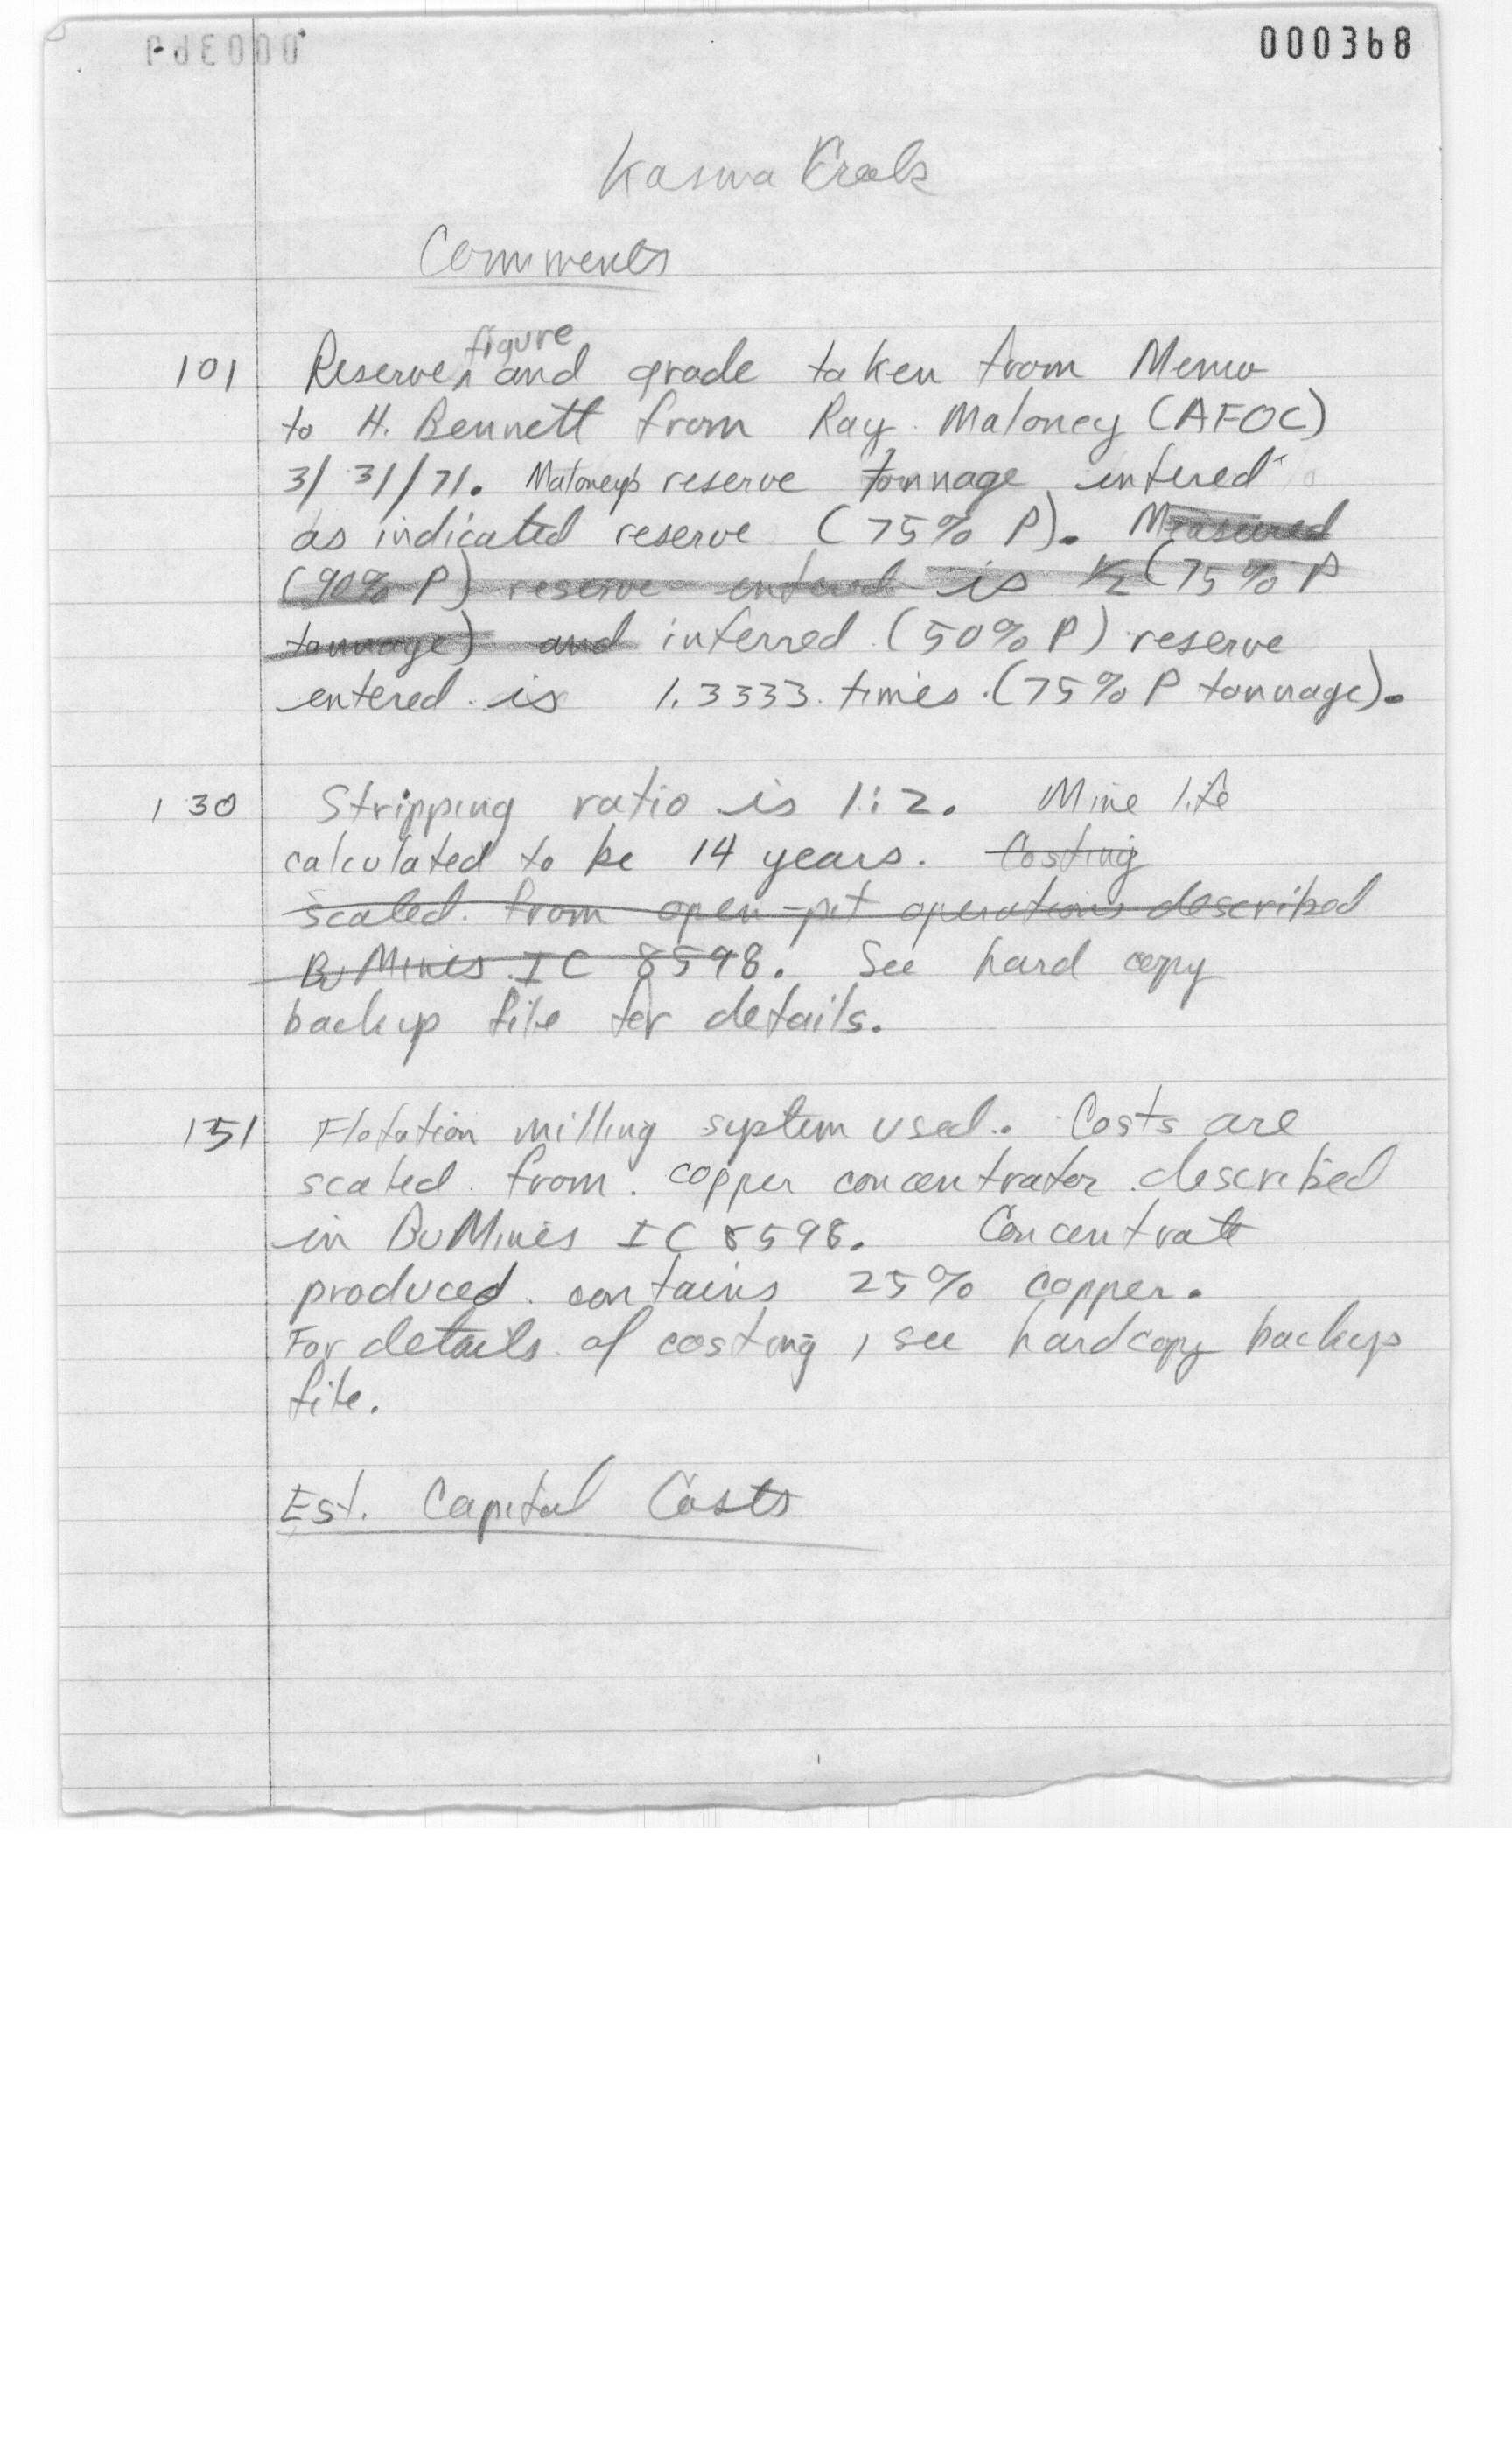 000368
Kasna Creek
Comments
figure
101 Reserve ∧ and grade taken from Memo
to H. Bennett from Ray Maloney (AFOC)
3/31/71. Maloney's reserve tonnage entered
as indicated reserve (75% P). Measured
(90% P) reserve entered is 1/2 (75% P
tonnage) and inferred (50% P) reserve
entered is 1.3333 times (75% P tonnage).
130 Stripping ratio is 1:2. Mine life
calculated to be 14 years. Costing
scaled from open-pit operations described
BuMines IC 8598. See hard copy
backup file for details.
151 Flotation milling system used. Costs are
scaled from copper concentrator described
in BuMines IC 8598. Concentrate
produced contains 25% copper.
For details of costing, see hardcopy backup
file.
Est. Capital Costs